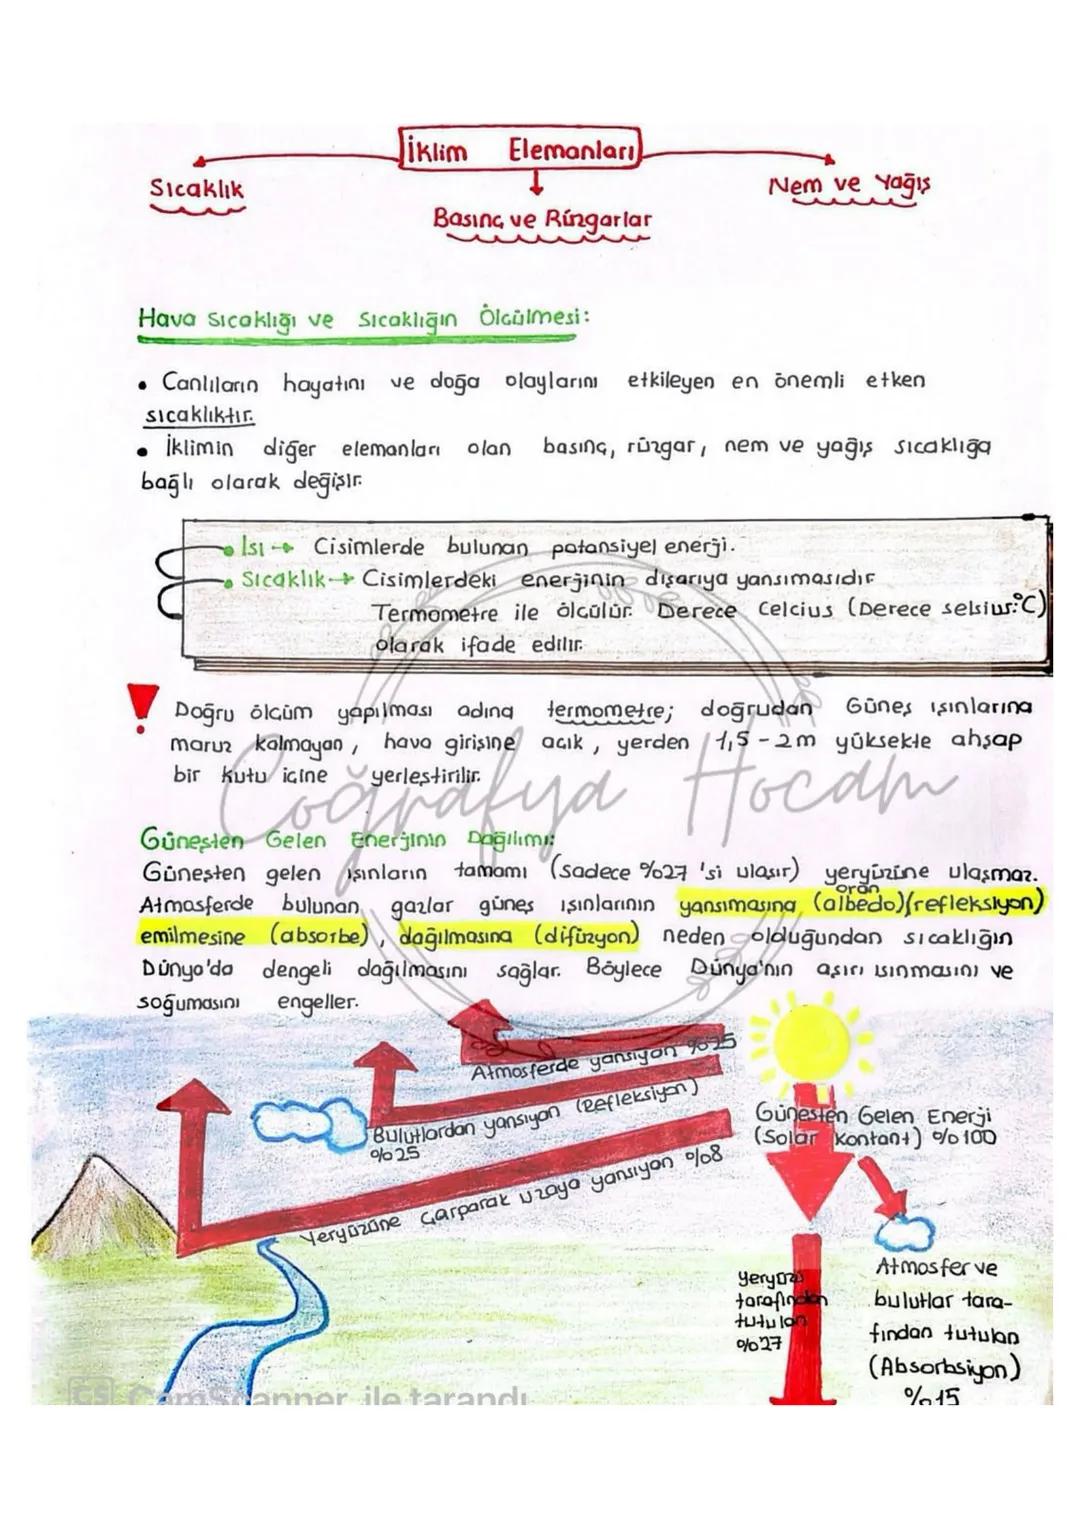 İklim Elemanları
Sıcaklık
Basınç ve Rüzgarlar
Nem ve Yağış
Hava Sıcaklığı ve Sıcaklığın Ölçülmesi:
• Canlıların hayatını ve doğa olaylarını etkileyen en önemli etken
sıcaklıktır.
• İklimin diğer elemanları olan basınç, rüzgar, nem ve yağış sıcaklığa
bağlı olarak değişir.
• Isı → Cisimlerde bulunan potansiyel enerji.
• Sıcaklık → Cisimlerdeki enerjinin dışarıya yansımasıdır
Termometre ile ölçülür. Derece Celcius (Derece selsius:°C)
olarak ifade edilir.
! Doğru ölçüm yapılması adına termometre; doğrudan Güneş ışınlarına
maruz kalmayan, hava girişine açık, yerden 1,5-2m yüksekte ahşap
bir kutu içine yerleştirilir.
Coğrafya Hocam
Güneşten Gelen Enerjinin Dağılımı:
Güneşten gelen ışınların tamamı (Sadece %27 'si ulaşır) yeryüzüne ulaşmaz.
Atmosferde bulunan gazlar güneş ışınlarının yansımasına oran (albedo)(refleksiyon)
emilmesine (absorbe), dağılmasına (difüzyon) neden olduğundan sıcaklığın
Dünya'da dengeli dağılmasını sağlar. Böylece Dünya'nın aşırı ısınmasını ve
soğumasını engeller.
Atmosferde yansıyan %25
Bulutlardan yansıyan (Refleksiyon)
%25
Yeryüzüne Çarparak uzaya yansıyan %8
Güneşten Gelen Enerji
(Solar Kontant) %100
Yeryüzü
tarafından
tutulan
%27
Atmosfer ve
bulutlar tara-
fından tutulan
(Absorbsiyon)
%15
CS CamScanner ile tarandı